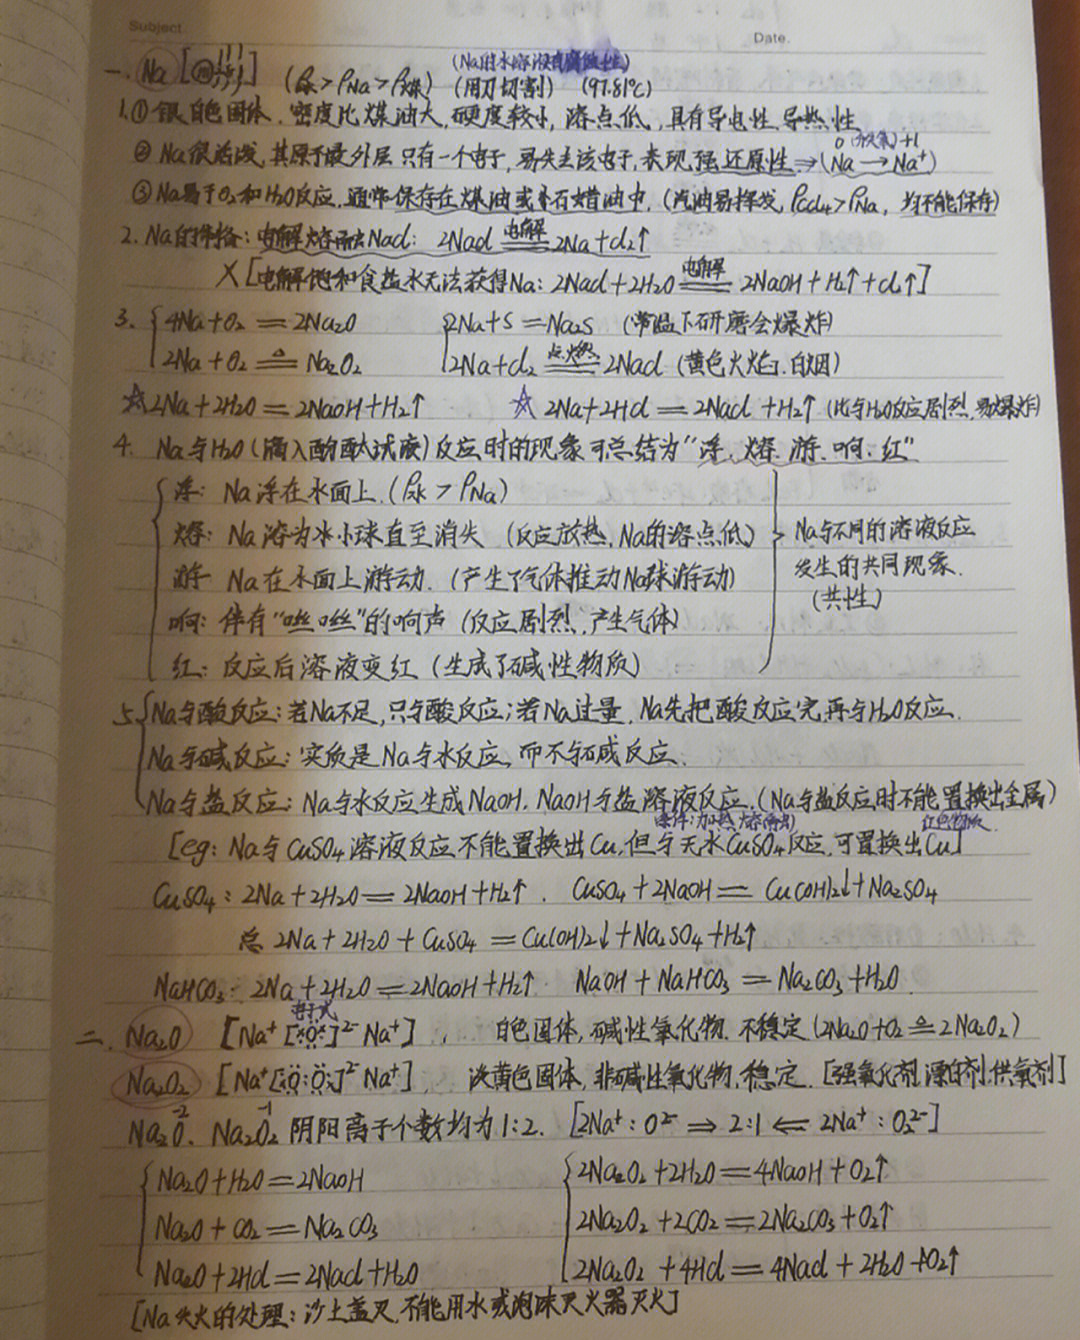 Subject.
Date.
(Na的水溶液有腐蚀性)
一. Na [ ] (ρ水>ρNa>ρ煤) (用刀切割) (97.81℃)
1.① 银白色固体，密度比煤油大，硬度较小，溶点低，具有导电性，导热性
② Na很活泼，其原子最外层只有一个电子，易失去该电子，表现强还原性⇒(Na⁰→Na⁺ +1)
③ Na易于O₂和H₂O反应，通常保存在煤油或 石蜡油中，(汽油易挥发，ρCCl₄>ρNa，均不能保存)
2. Na的制备：电解熔融NaCl：2NaCl 电解══ 2Na+Cl₂↑
X [电解饱和食盐水无法获得Na：2NaCl+2H₂O 电解══ 2NaOH+H₂↑+Cl₂↑]
3. { 4Na+O₂══2Na₂O { 2Na+S══Na₂S (常温下研磨会爆炸)
2Na+O₂ △══ Na₂O₂ 2Na+Cl₂ 点燃══ 2NaCl (黄色火焰，白烟)
☆2Na+2H₂O══2NaOH+H₂↑ ☆ 2Na+2HCl══2NaCl+H₂↑ (比与H₂O反应剧烈，易爆炸)
4. Na与H₂O(滴入酚酞试液)反应时的现象可总结为“浮、熔、游、响、红”
浮：Na浮在水面上.(ρ水>ρNa)
熔：Na溶为 小球直至消失 (反应放热，Na的溶点低) Na与不同的溶液反应
游 Na在水面上游动. (产生了气体推动Na球游动) 发生的共同现象.
响：伴有“咝咝”的响声 (反应剧烈，产生气体) (共性)
红：反应后溶液变红 (生成了碱性物质)
5 { Na与酸反应：若Na不足，只与酸反应；若Na过量，Na先把酸反应完，再与H₂O反应.
Na与碱反应：实质是Na与水反应，而不与碱反应.
Na与盐反应：Na与水反应生成NaOH，NaOH与盐溶液反应.(Na与盐反应时不能置换出金属)
红色物质.
[eg：Na与CuSO₄溶液反应不能置换出Cu，但与无水CuSO₄反应，可置换出Cu]
CuSO₄：2Na+2H₂O══2NaOH+H₂↑. CuSO₄+2NaOH══Cu(OH)₂↓+Na₂SO₄
总 2Na+2H₂O+CuSO₄══Cu(OH)₂↓+Na₂SO₄+H₂↑
NaHCO₃：2Na+2H₂O══2NaOH+H₂↑ NaOH+NaHCO₃══Na₂CO₃+H₂O
电子式
二. Na₂O [Na⁺[:O:]²⁻Na⁺]， 白色固体，碱性氧化物，不稳定(2Na₂O+O₂ △══ 2Na₂O₂)
Na₂O₂ [Na⁺[:O:O:]²⁻Na⁺]， 淡黄色固体，非碱性氧化物，稳定. [强氧化剂，漂白剂，供氧剂]
-2 -1
Na₂O、Na₂O₂ 阴阳离子个数均为1:2. [2Na⁺:O²⁻⇒2:1⇐2Na⁺:O₂²⁻]
{ Na₂O+H₂O══2NaOH { 2Na₂O₂+2H₂O══4NaOH+O₂↑
Na₂O+CO₂══Na₂CO₃ 2Na₂O₂+2CO₂══2Na₂CO₃+O₂↑
Na₂O+2HCl══2NaCl+H₂O 2Na₂O₂+4HCl══4NaCl+2H₂O+O₂↑
[Na失火的处理：沙土盖灭，不能用水或泡沫灭火器灭火]